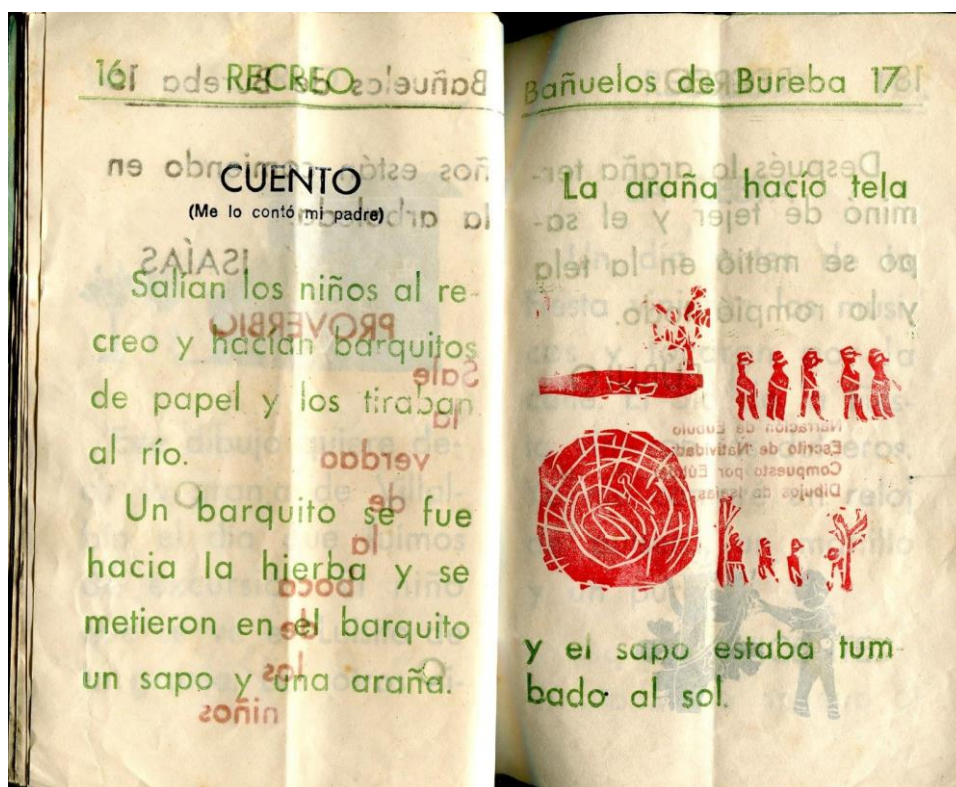 16 RECREO
CUENTO
(Me lo contó mi padre)
Salían los niños al re-
creo y hacían barquitos
de papel y los tiraban
al río.
Un barquito se fue
hacia la hierba y se
metieron en el barquito
un sapo y una araña.
Bañuelos de Bureba 17
La araña hacía tela
y el sapo estaba tum-
bado al sol.